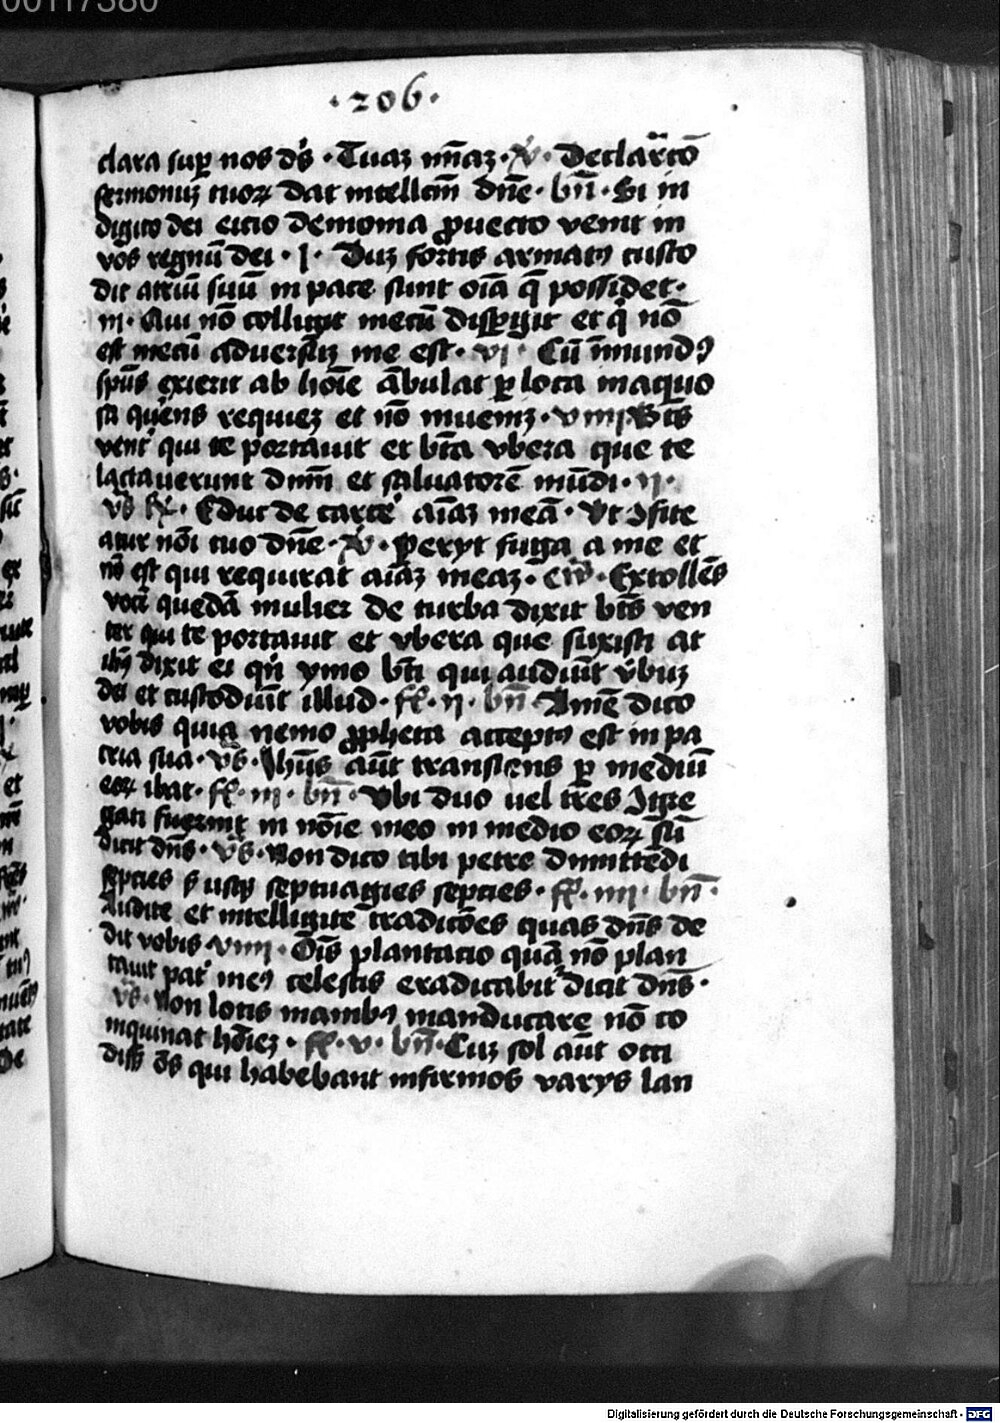 00117380
·206·
clara sup nos d̄s · Tuaz mīaz · v̄ · Declar̄co
sermonuz tuoꝝ dat intellcm̄ dn̄e · bn̄ · Si in
digito dei eicio demonia ꝓuecto venit in
vos regnū dei · I · Duz fortis armatꝯ custo
dit atriū suū in pace sunt oīa q̄ possidet ·
III · Qui nō colligit mecū dispgit et q̇ nō
est mecū aduersuz me est · VI · Cū īmundꝯ
spūs exierit ab hoīe ābulat p loca inaquo
sa querēs requiez et nō inueniēs · VIII · Bt̄s
vent̄ qui te portauit et bt̄a vbera que te
lactauerunt dnm̄ et saluatorē mūdi · II ·
vs̄ · Educ de carce aīaz meā · Vt ꝯfite
atur nōi tuo dn̄e · v̄ · peryt fuga a me et
nō est qui requirat aīaz meaz · ew̄ · Extollēs
vocē quedā mulier de turba dixit bt̄s ven
ter qui te portauit et vbera que suxisti at
ihs̄ dixit ei qn̄ ymo bt̄i qui audiūt v̄buz
dei et custodiūt illud · ff · II · bn̄ · Amē dico
vobis quia nemo ꝓpheta acceptꝯ est in pa
tria sua · vs̄ · Ihūs aūt transiens p mediū
eoꝝ ibat · ff · III · bn̄ · Vbi duo uel tres ꝯgre
gati fuerint in nōīe meo in medio eoꝝ sū
dicit dn̄s · vs̄ · Non dico tibi petre dimittēdi
septies s̄ usqꝫ septuagies septies · ff · IIII · bn̄ ·
Audite et intelligite tradicōes quas dn̄s de
dit vobis · VIIII · Oīs plantacio quā nō plan
tauit pat̄ meꝯ celestis eradicabit̄ dicit dn̄s ·
vs̄ · Non lotis manibꝯ manducare nō co
inquinat hōiez · ff · V · bn̄ · Cuz sol aūt occi
diss̄ ōs qui habebant infirmos varys lan
Digitalisierung gefördert durch die Deutsche Forschungsgemeinschaft - DFG